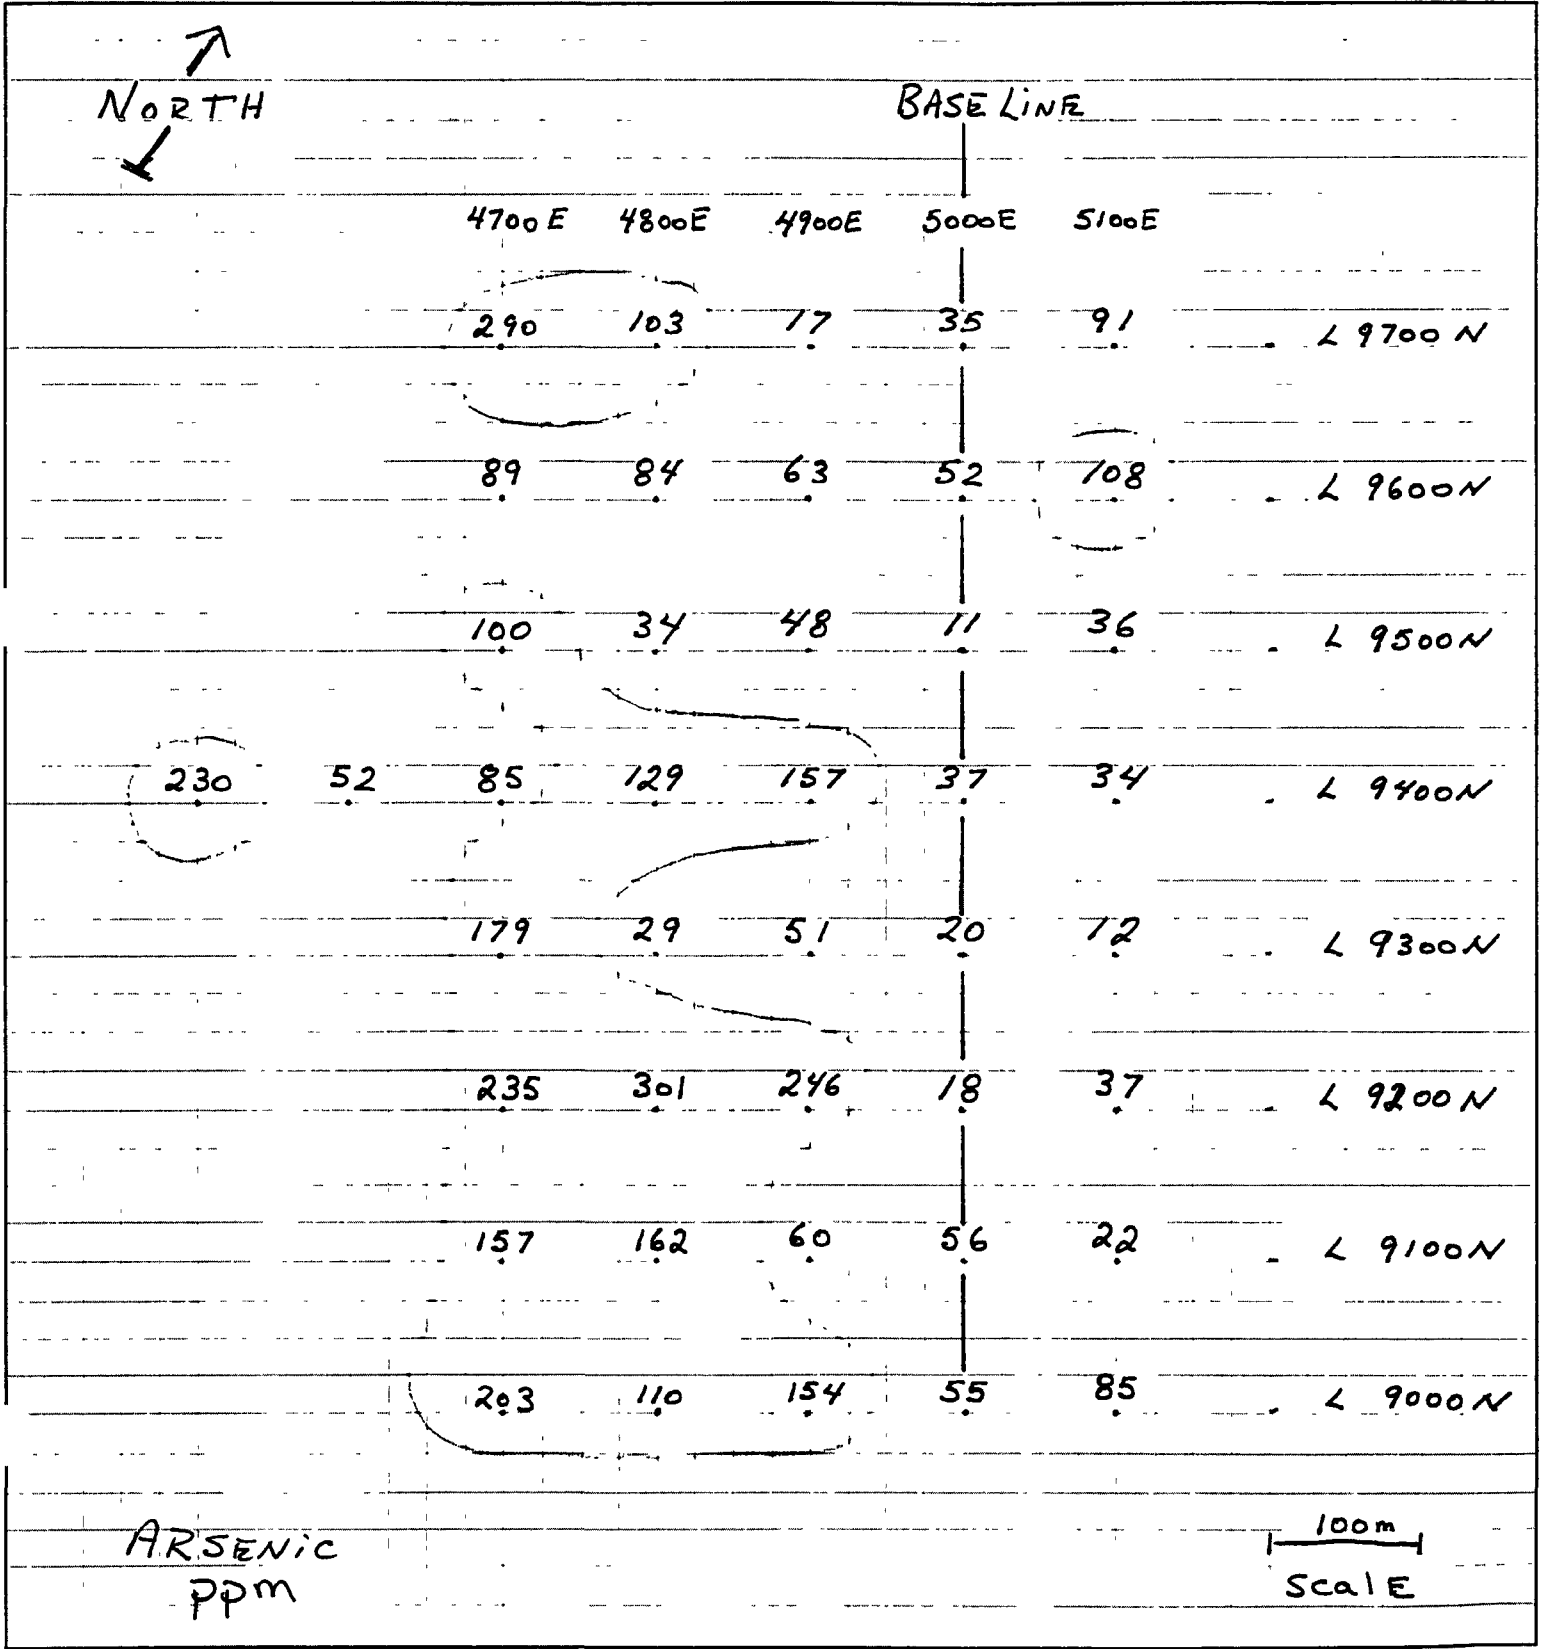 NORTH
BASE LINE
4700E 4800E 4900E 5000E 5100E
290 103 17 35 91 L 9700 N
89 84 63 52 108 L 9600N
100 34 48 11 36 L 9500N
230 52 85 129 157 37 34 L 9400N
179 29 51 20 12 L 9300N
235 301 246 18 37 L 9200N
157 162 60 56 22 L 9100N
203 110 154 55 85 L 9000N
ARSENIC
ppm
100m
scalE